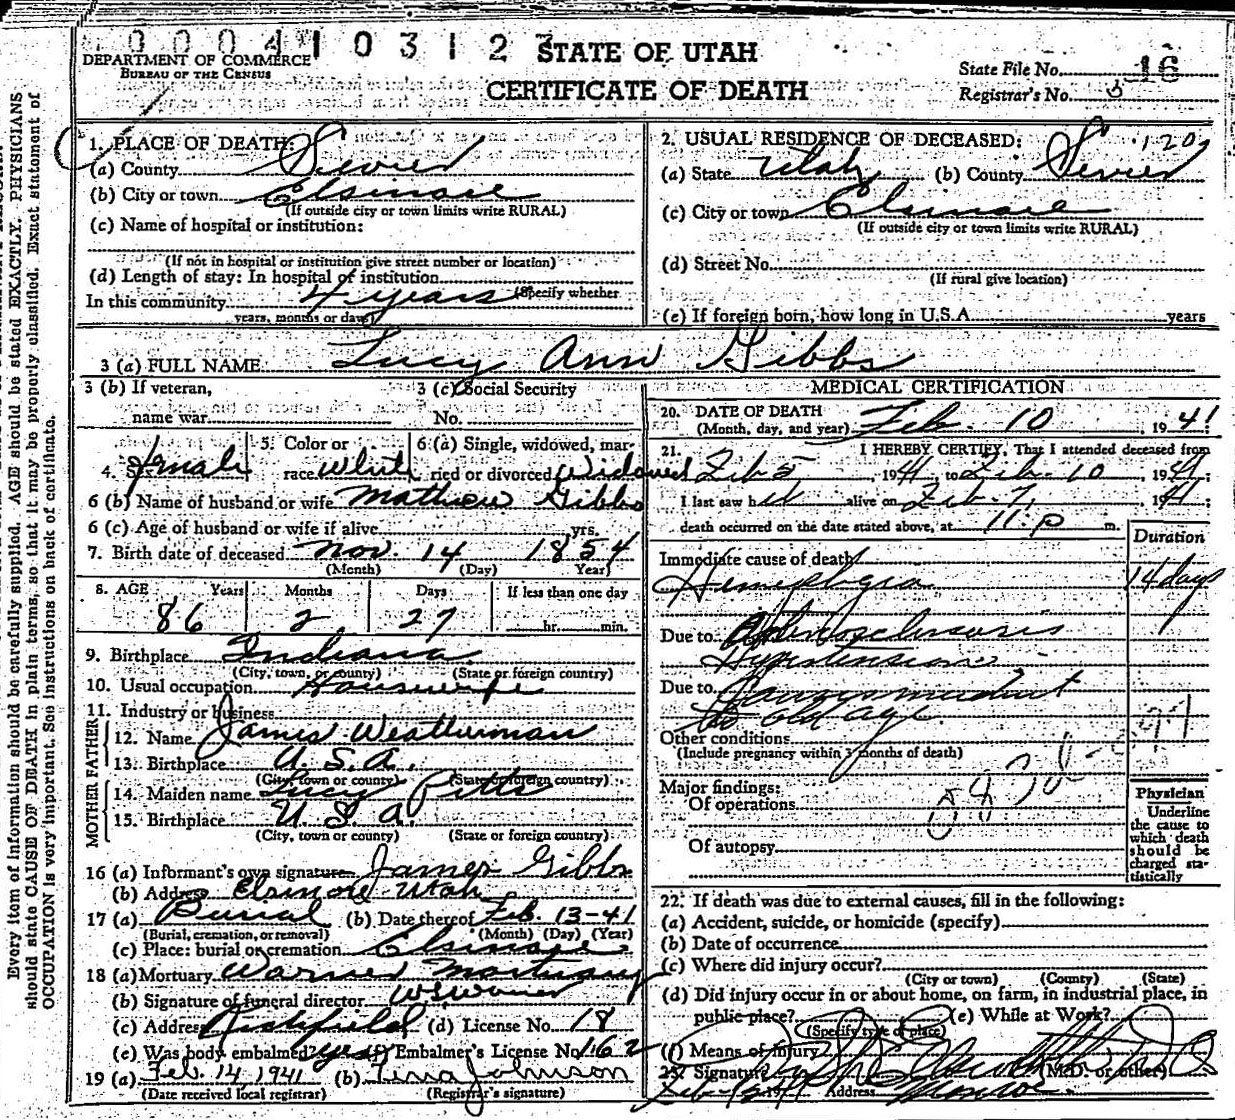 000410312
STATE OF UTAH
CERTIFICATE OF DEATH
DEPARTMENT OF COMMERCE
BUREAU OF THE CENSUS
State File No. 16
Registrar's No. 3
Every item of information should be carefully supplied. AGE should be stated EXACTLY. PHYSICIANS
should state CAUSE OF DEATH in plain terms, so that it may be properly classified. Exact statement of
OCCUPATION is very important. See instructions on back of certificate.
1. PLACE OF DEATH:
(a) County Sevier
(b) City or town Elsinore
(If outside city or town limits write RURAL)
(c) Name of hospital or institution:
(If not in hospital or institution give street number or location)
(d) Length of stay: In hospital of institution
In this community 4 years (Specify whether
years, months or days)
2. USUAL RESIDENCE OF DECEASED: 120
(a) State Utah (b) County Sevier
(c) City or town Elsinore
(If outside city or town limits write RURAL)
(d) Street No.
(If rural give location)
(e) If foreign born, how long in U.S.A. years
3 (a) FULL NAME Lucy Ann Gibbs
3 (b) If veteran,
name war
3 (c) Social Security
No.
4. female
5. Color or
race White
6 (a) Single, widowed, mar-
ried or divorced Widowed
6 (b) Name of husband or wife Mathew Gibbs
6 (c) Age of husband or wife if alive yrs.
7. Birth date of deceased Nov. 14 1854
(Month) (Day) Year)
8. AGE Years Months Days If less than one day
86 2 27 hr. min.
9. Birthplace Indiana
(City, town, or county) (State or foreign country)
10. Usual occupation Housewife
11. Industry or business
FATHER
12. Name James Weatherman
13. Birthplace U.S.A.
(City, town or county) (State or foreign country)
MOTHER
14. Maiden name Lucy Pitts
15. Birthplace U.S.A.
(City, town or county) (State or foreign country)
16 (a) Informant's own signature James Gibbs
(b) Address Elsinore Utah
17 (a) Burial (b) Date thereof Feb. 13-41
(Burial, cremation, or removal) (Month) (Day) (Year)
(c) Place: burial or cremation Elsinore
18 (a) Mortuary Warner Mortuary
(b) Signature of funeral director W Warner
(c) Address Richfield (d) License No. 18
(e) Was body embalmed? yes (f) Embalmer's License No. 162
19 (a) Feb. 14, 1941 (b) Johnson
(Date received local registrar) (Registrar's signature)
MEDICAL CERTIFICATION
20. DATE OF DEATH
(Month, day, and year) Feb. 10, 1941
21. I HEREBY CERTIFY, That I attended deceased from
Feb 5, 1941 to Feb. 10, 1941;
I last saw h alive on Feb. 7, 1941;
death occurred on the date stated above, at 11:p m.
Duration
Immediate cause of death
Hemiplegia 14 days
Due to Arteriosclerosis
Hypertension
Due to
to old age.
Other conditions
(Include pregnancy within 3 months of death)
Major findings:
Of operations
Of autopsy
Physician
Underline
the cause to
which death
should be
charged sta-
tistically
22. If death was due to external causes, fill in the following:
(a) Accident, suicide, or homicide (specify)
(b) Date of occurrence
(c) Where did injury occur?
(City or town) (County) (State)
(d) Did injury occur in or about home, on farm, in industrial place, in
public place? (e) While at Work?
(Specify type of place)
(f) Means of Injury
23. Signature (M.D. or other)
Address Monroe